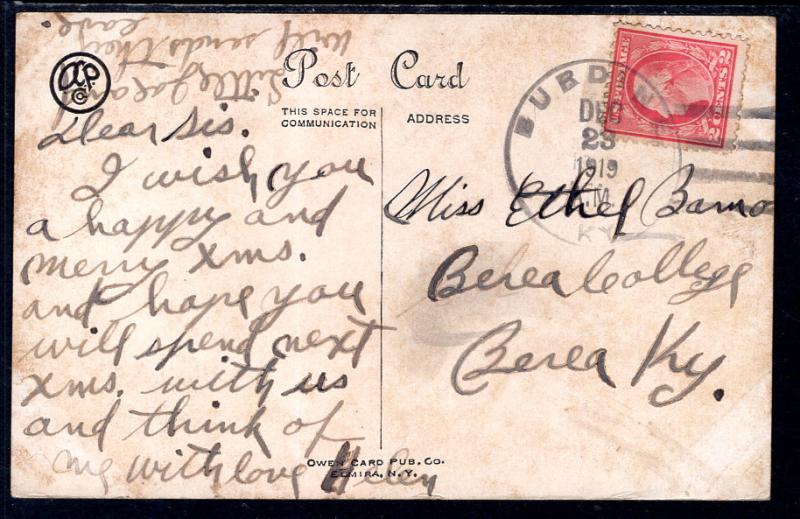 Will sends their
love
Little
Post Card
THIS SPACE FOR
COMMUNICATION
ADDRESS
Dear Sis.
I wish you
a happy and
merry xms.
and hope you
will spend next
xms. with us
and think of
me with love Helen
BURD N
DEC
23
1919
.M.
KY.
POSTAGE
2 CENTS 2
Miss Ethel
Berea College
Berea Ky.
OWEN CARD PUB. CO.
ELMIRA, N.Y.